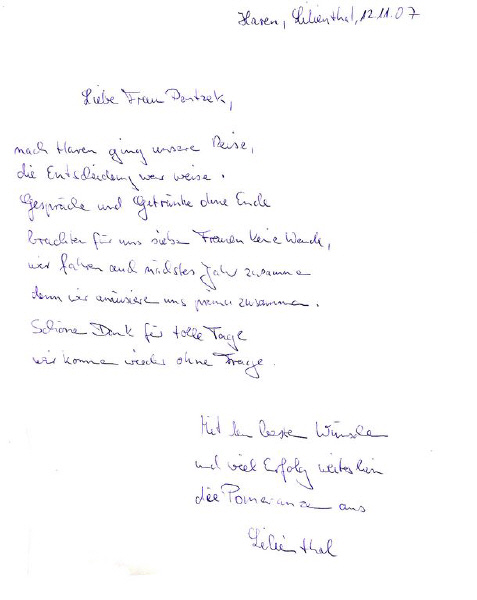 Haren, Lilienthal, 12.11.07
Liebe Frau
nach Haren ging unsere Reise,
die Entscheidung war weise.
Gespräche und Getränke ohne Ende
brachten für uns sieben Frauen keine Wende,
wir fahren auch nächstes Jahr zusammen
denn wir amüsieren uns prima zusammen.
Schönen Dank für tolle Tage
wir kommen wieder ohne Frage.
Mit den besten Wünschen
und viel Erfolg weiterhin
die Pomeranzen aus
Lilienthal